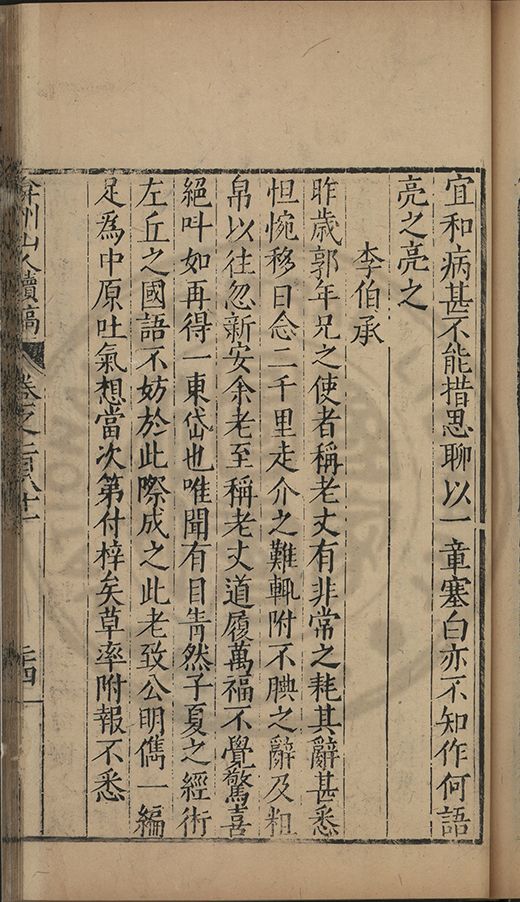 宜和病甚不能措思聊以一童塞白亦不知作何語
亮之亮之
李伯承
昨歲郭年兄之使者稱老丈有非常之耗其辭甚悉
怛惋移日念二千里走介之難輒附不腆之辭及粗
帛以往忽新安余老至稱老丈道履萬福不覺驚喜
絕叫如再得一東岱也唯聞有目眚然子夏之經術
左丘之國語不妨於此際成之此老致公明雋一編
足為中原吐氣想當次第付梓矣草率附報不悉
弇州山人續稿
卷之
二十四